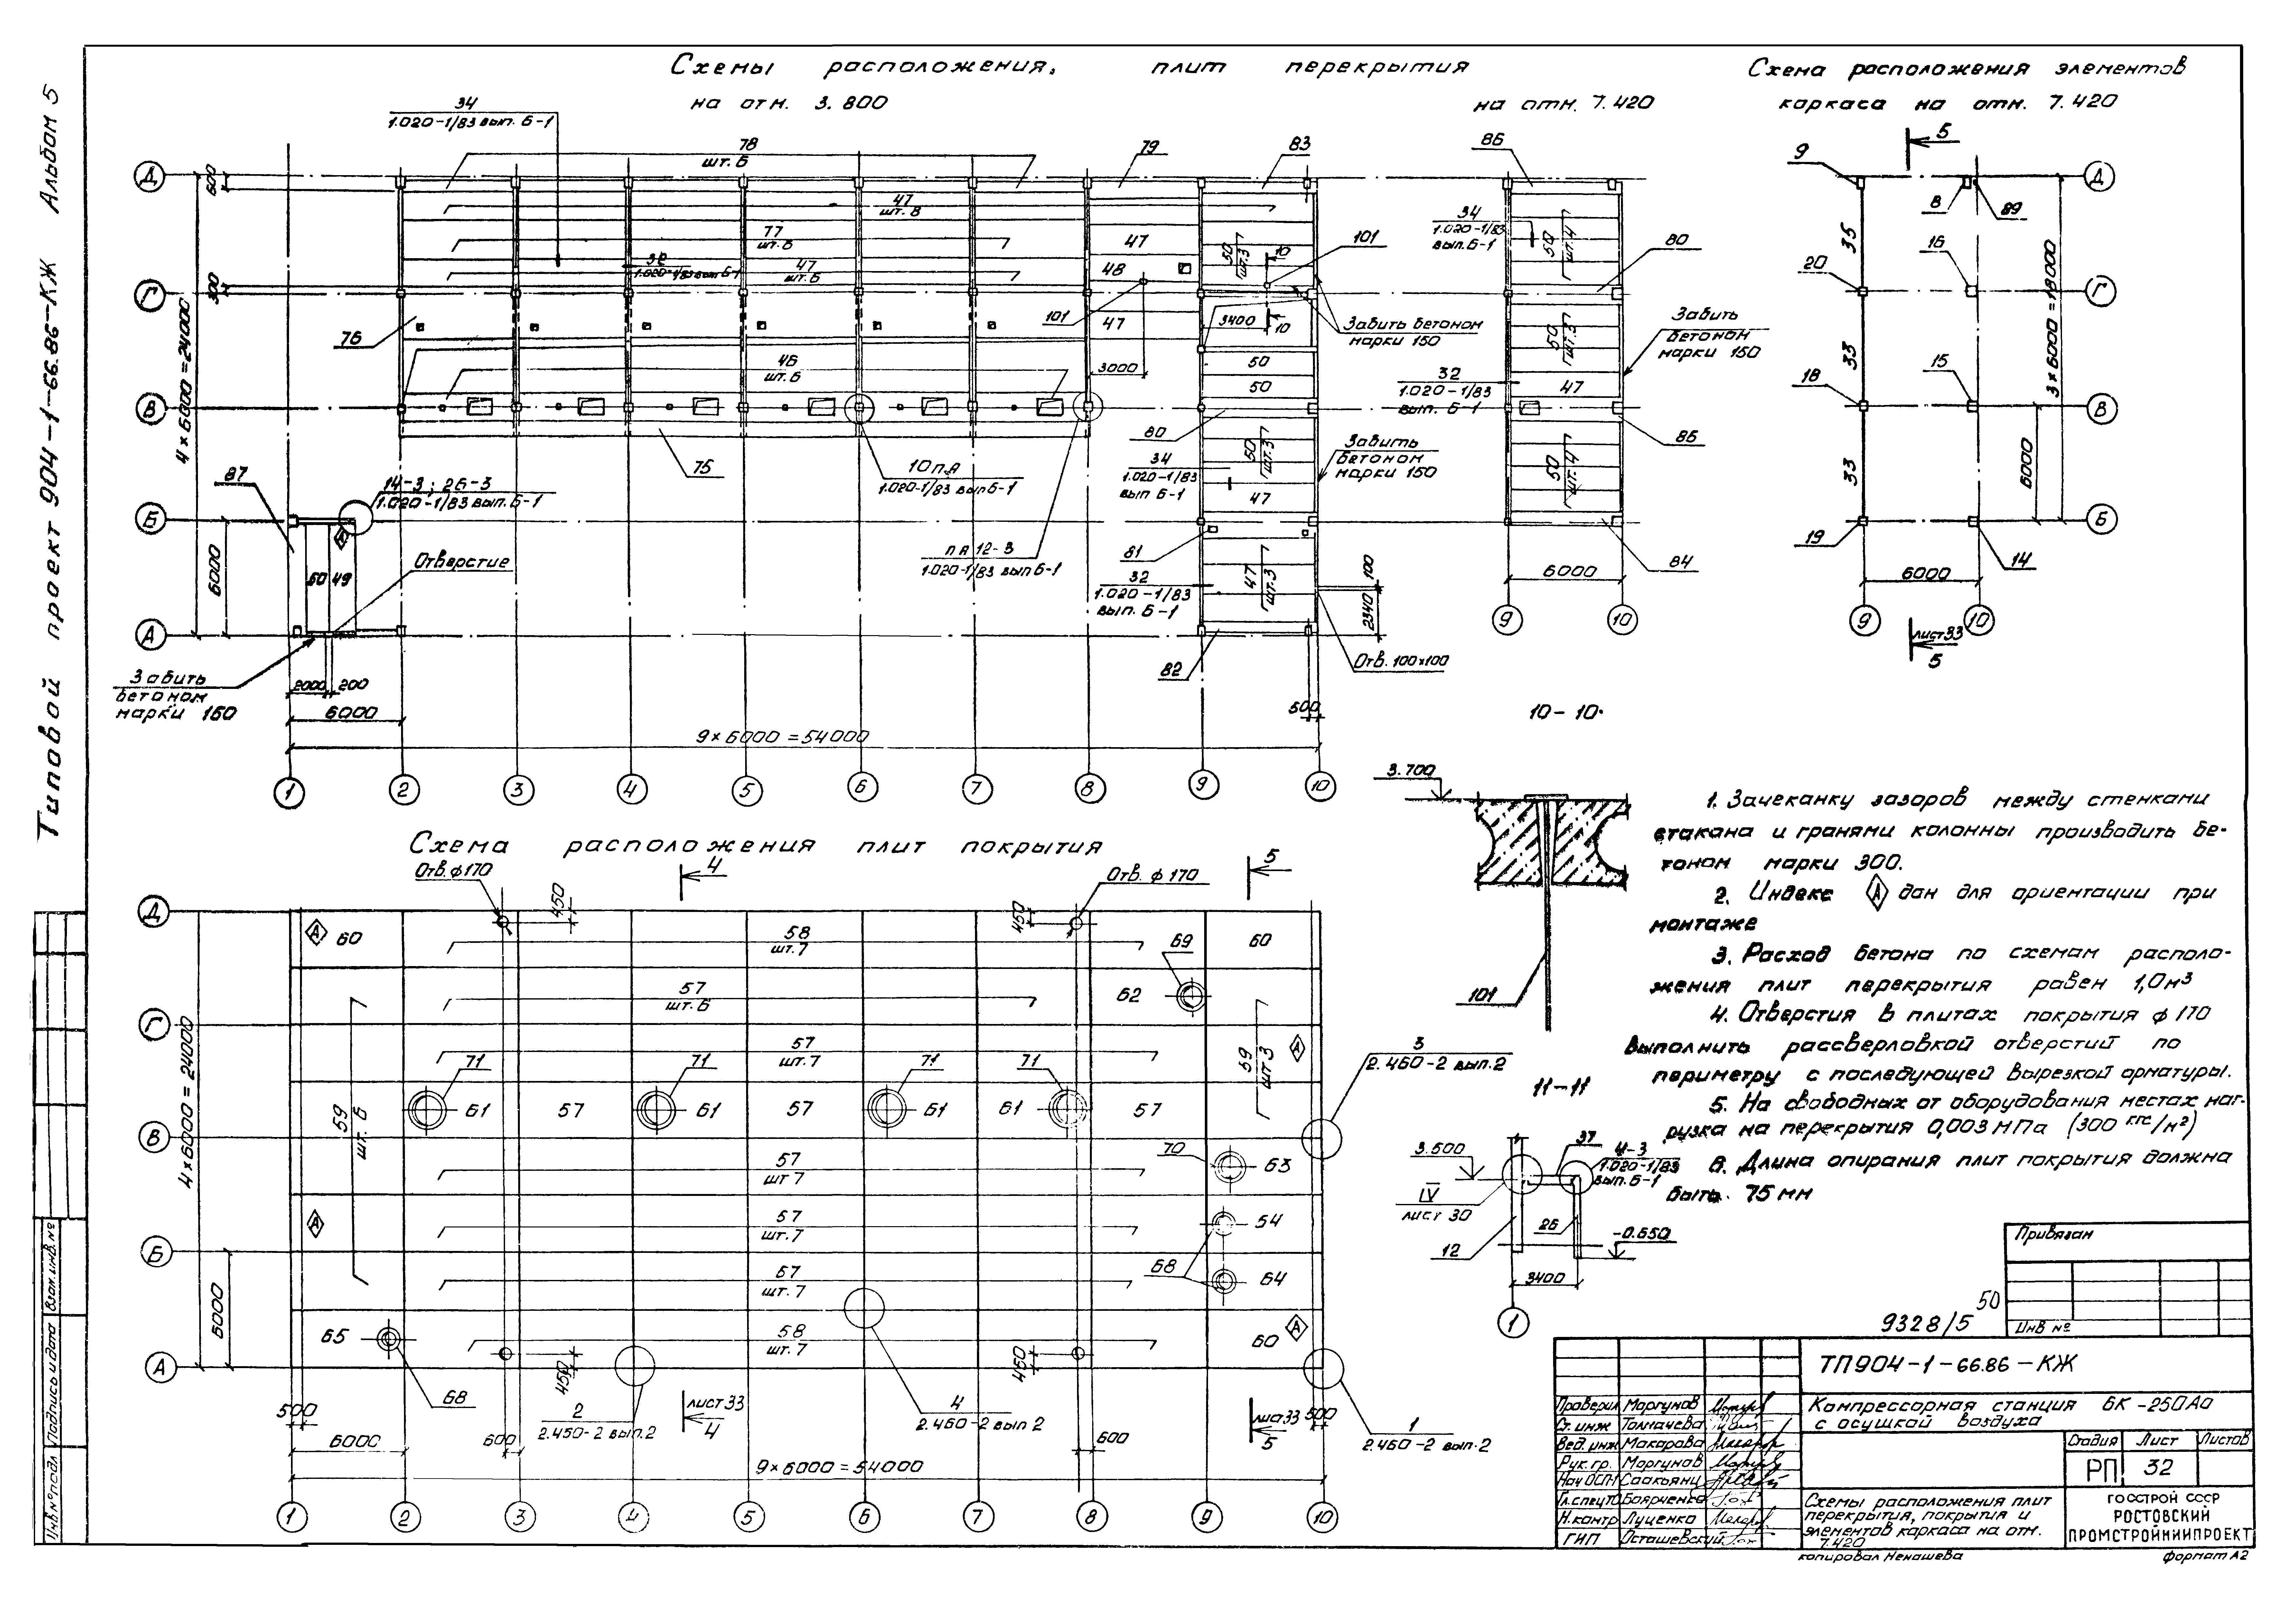 Типовой проект 904-1-66.86-КЖ Альбом 5
Схемы расположения, плит перекрытия
на отм. 3.800
на отм. 7.420
Схема расположения элементов
каркаса на отм. 7.420
34
1.020-1/83 вып. 6-1
78
шт. 6
79
83
86
47
шт. 8
77
шт. 6
47
шт. 6
32
1.020-1/83 вып 6-1
47
48
47
50
шт. 3
101
101
10
10
3400
3000
Забить бетоном
марки 150
76
46
шт. 6
50
50
75
80
50
шт. 3
34
1.020-1/83
вып 6-1
47
Забить
бетоном
марки 150
81
32
1.020-1/83
вып. 6-1
47
шт. 3
82
Отв. 100х100
100
2340
500
87
14-3; 26-3
1.020-1/83 вып 6-1
10 п.я
1.020-1/83 вып 6-1
п я 12-3
1.020-1/83 вып 6-1
50
49
Отверстие
Забить
бетоном
марки 150
2000
200
6000
9 x 6000 = 54000
600
300
4 x 6000 = 24000
6000
Д
Г
В
Б
А
1 2 3 4 5 6 7 8 9 10
34
1.020-1/83
вып. 6-1
50
шт. 4
80
50
шт. 3
Забить
бетоном
марки 150
32
1.020-1/83
вып. 6-1
47
86
50
шт. 4
84
6000
9 10
5
9
8
89
Д
35
16
20
Г
33
15
18
В
33
19
14
Б
3x6000=18000
6000
6000
9 10
лист 33
5
Схема расположения плит покрытия
Отв. ф170
4
Отв. ф 170
5
450
450
А
60
58
шт. 7
69
60
57
шт. 6
62
59
шт. 6
57
шт. 7
59
шт 3
А
71
71
71
71
61 57 61 57 61 61 57
57
шт 7
70
63
А
57
шт. 7
54
57
шт. 7
68
64
65
58
шт. 7
60
А
68
450
450
2
2.460-2 вып. 2
лист 33
4
4
2.460-2 вып 2
лист 33
5
1
2.460-2 вып. 2
3
2.460-2 вып. 2
500
6000
600
600
500
9 x 6000 = 54000
4 x 6000 = 24000
6000
Д
Г
В
Б
А
1 2 3 4 5 6 7 8 9 10
10-10
3.700
101
11-11
3.500
37
4-3
1.020-1/83
вып. 6-1
IV
лист 30
12
26
-0.650
3400
1
1. Зачеканку зазоров между стенками
стакана и гранями колонны производить бе-
тоном марки 300.
2. Индекс А дан для ориентации при
монтаже
3. Расход бетона по схемам располо-
жения плит перекрытия равен 1,0 м³
4. Отверстия в плитах покрытия ф 170
выполнить рассверловкой отверстий по
периметру с последующей вырезкой арматуры.
5. На свободных от оборудования местах наг-
рузка на перекрытия 0,003 МПа (300 кгс/м²)
6. Длина опирания плит покрытия должна
быть 75 мм
Привязан
Инв №
50
9328/5
ТП904-1-66.86-КЖ
Компрессорная станция 6К-250Ао
с осушкой воздуха
Стадия Лист Листов
РП 32
Схемы расположения плит
перекрытия, покрытия и
элементов каркаса на отм.
7.420
ГОССТРОЙ СССР
РОСТОВСКИЙ
ПРОМСТРОЙНИИПРОЕКТ
Проверил Моргунов
Ст. инж Толмачева
Вед. инж Макарова
Рук. гр. Моргунов
Нач ОСП-1 Саакьянц
Гл. спец ТО Боярченко
Н. контр Луценко
ГИП Осташевский
копировал Ненашева
формат А2
Инв № подл Подпись и дата Взам. инв. №